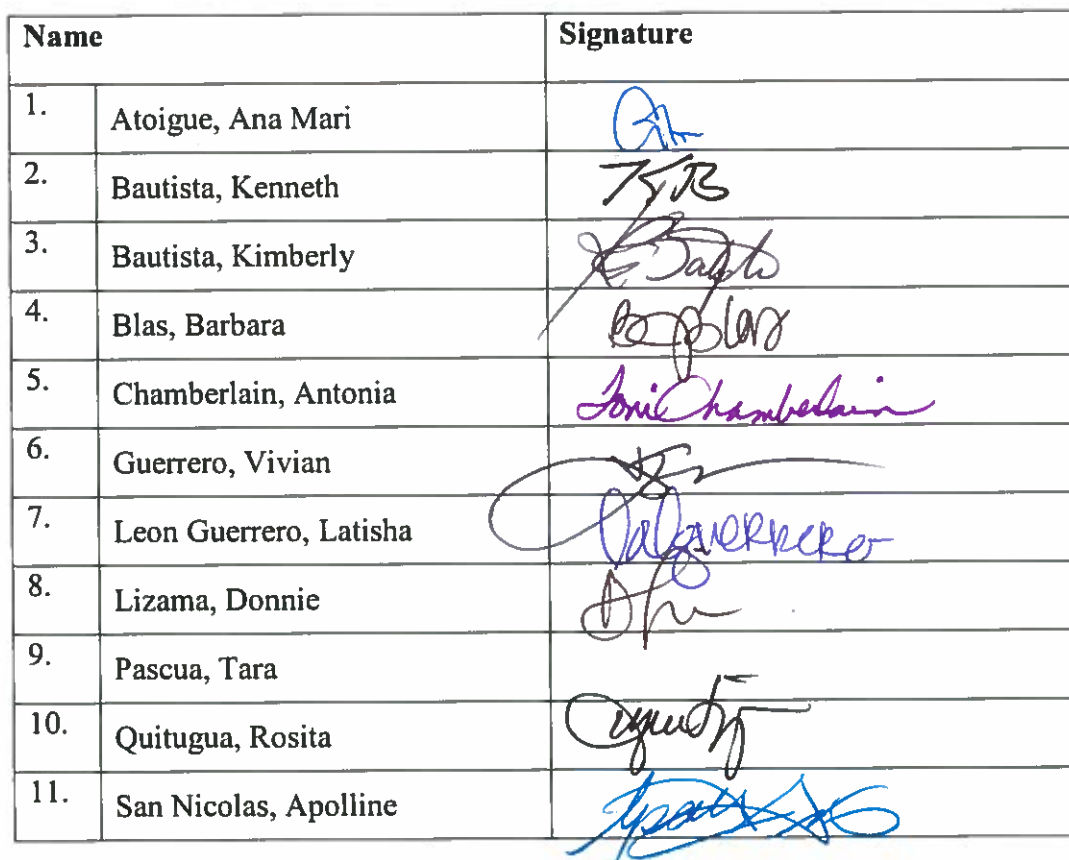 Name Signature
1. Atoigue, Ana Mari
2. Bautista, Kenneth KJB
3. Bautista, Kimberly
4. Blas, Barbara
5. Chamberlain, Antonia Toni Chamberlain
6. Guerrero, Vivian
7. Leon Guerrero, Latisha
8. Lizama, Donnie
9. Pascua, Tara
10. Quitugua, Rosita
11. San Nicolas, Apolline